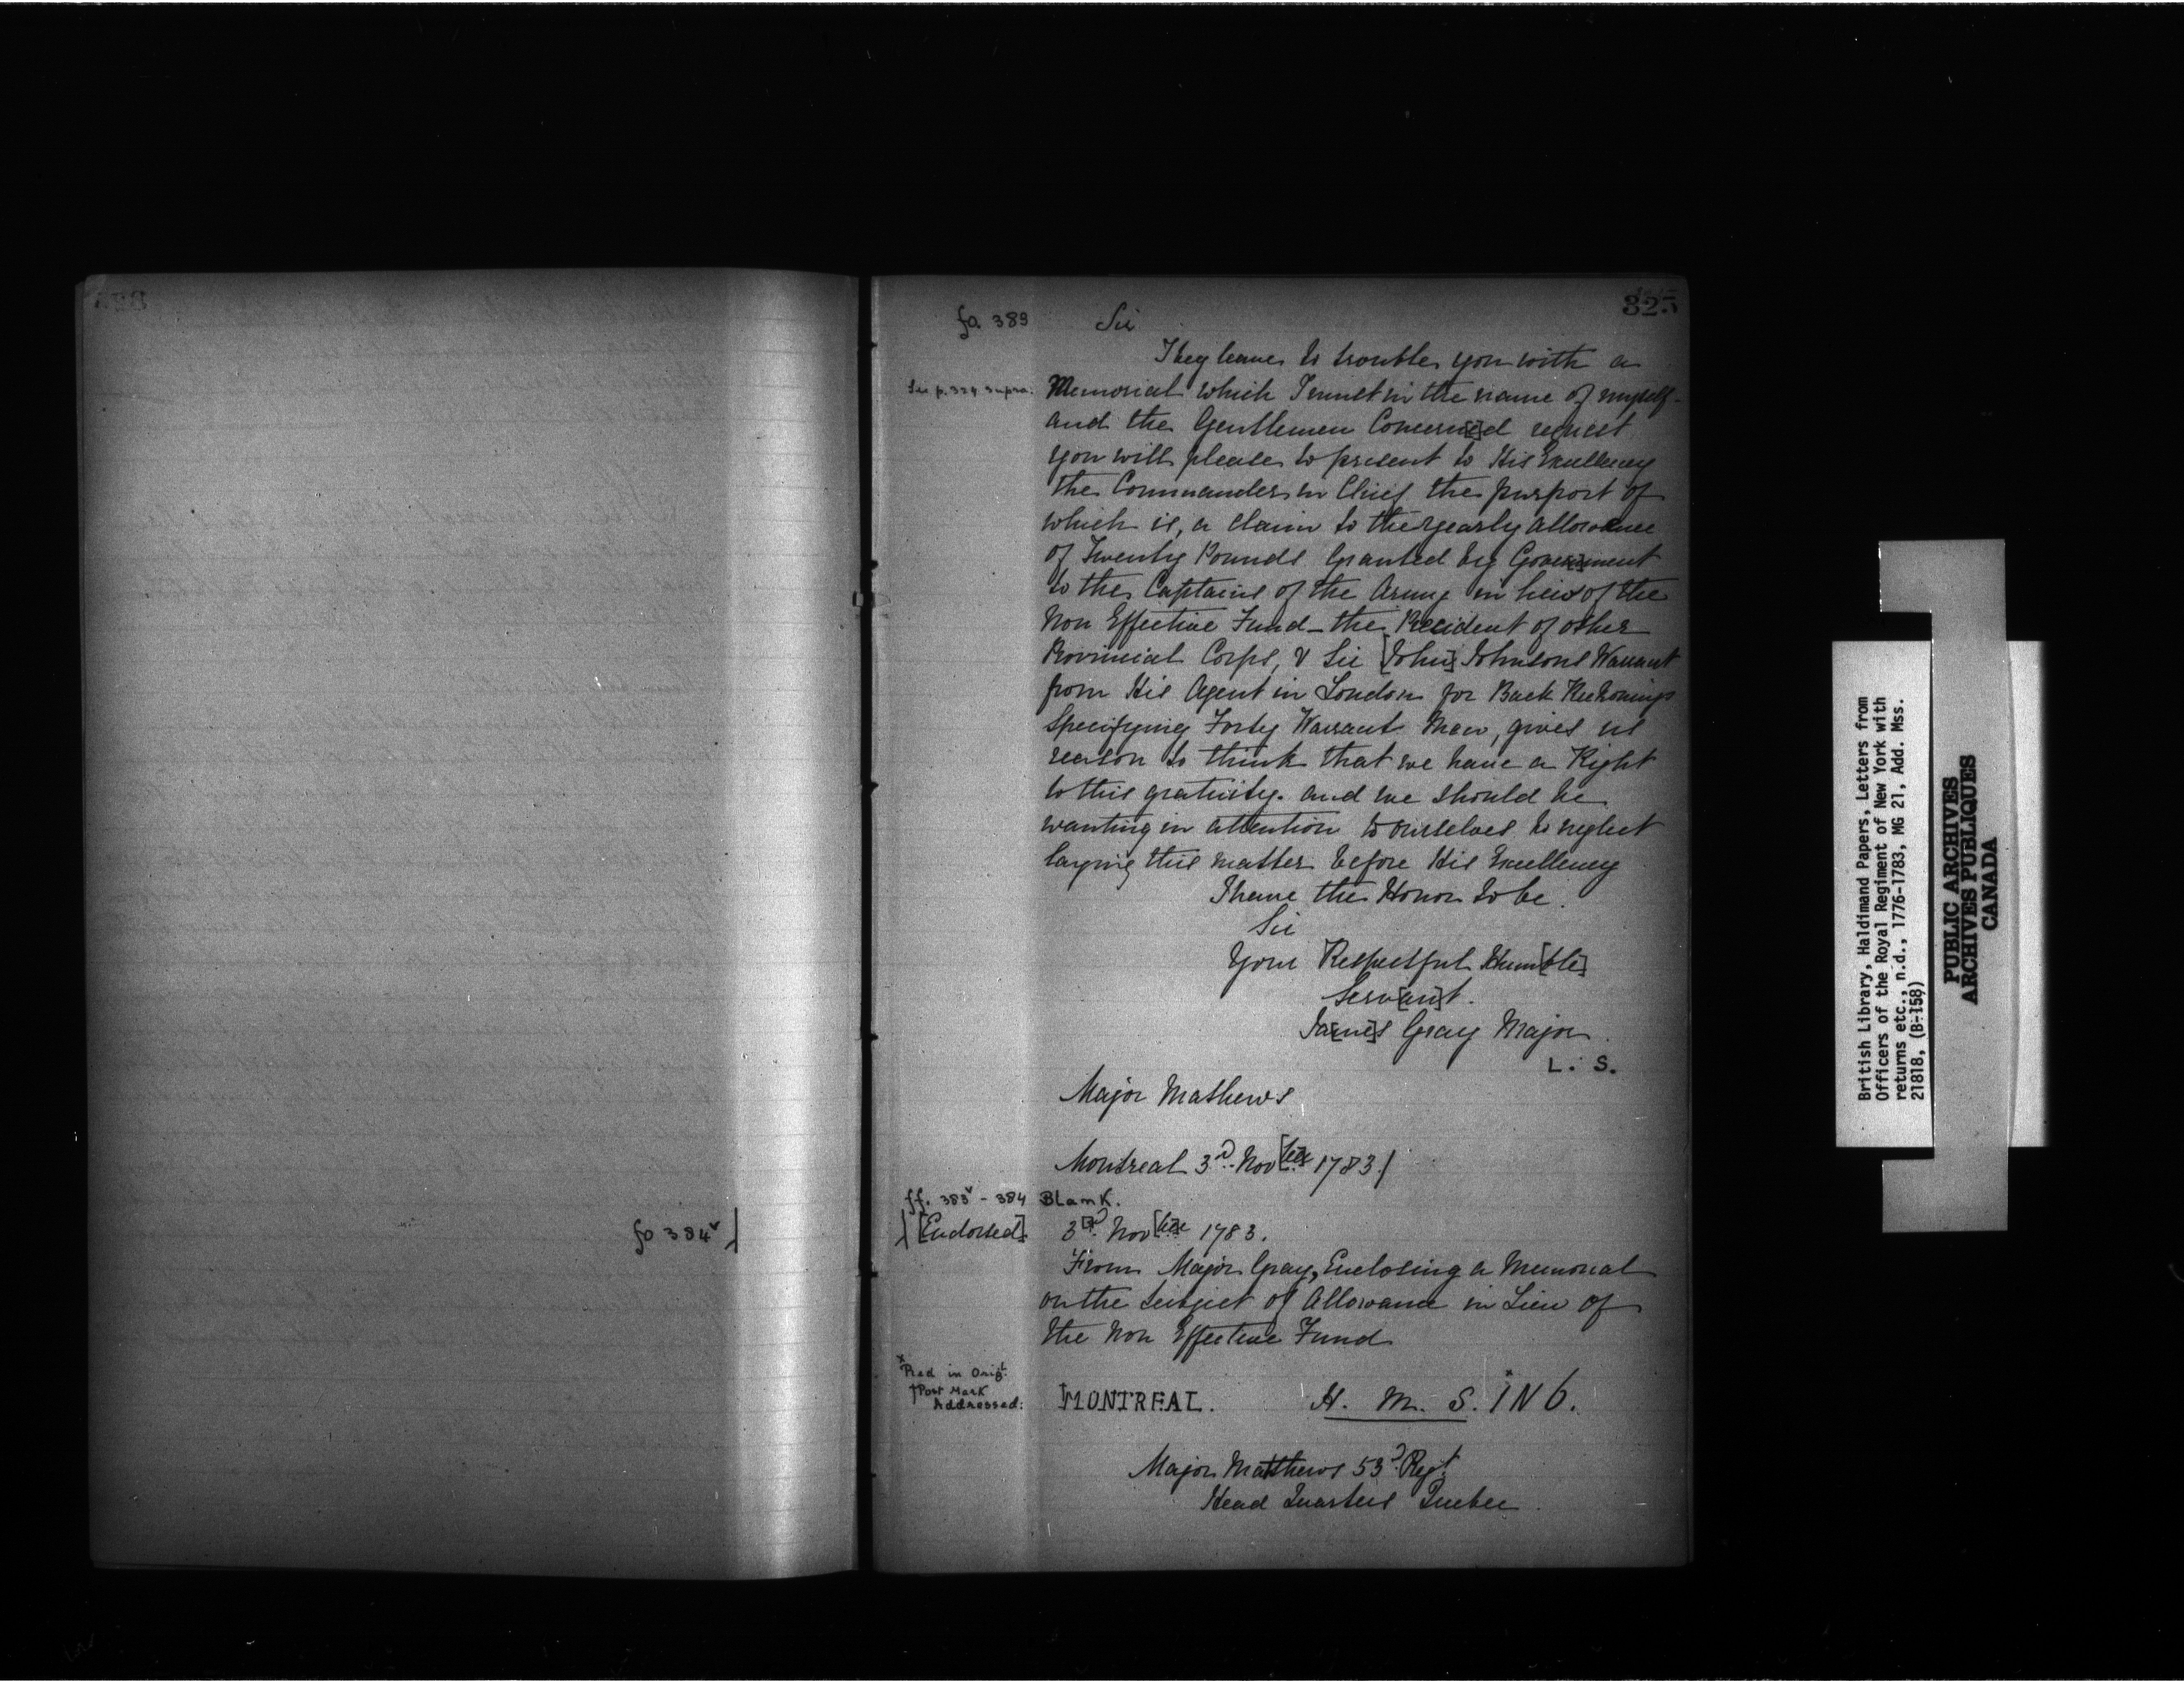 325
fo. 383
Sir
I beg leave to trouble you with a
See p. 324 supra.
Memorial which I must in the name of myself
and the Gentlemen Concern[e]d request
you will please to present to His Excellency
the Commander in Chief the purport of
which is, a claim to the yearly allowance
of Twenty Pounds Granted by Gover[n]ment
to the Captains of the Army in lieu of the
Non Effective Fund _ the Precident of other
Provincial Corps, & Sir [John] Johnsons Warrant
from His Agent in London for Back Reckonings
Specifying Forty Warrant Men, gives us
reason to think that we have a Right
to this gratuity. and we should be
wanting in attention to ourselves to neglect
laying this matter before His Excellency
I have the Honor to be.
Sir
Your Respectful Hum[ble]
Serv[an]t.
Ja[me]s Gray Major
L. S.
Major Mathews
Montreal 3d. Nov[ber] 1783./
ff. 383v - 384 Blank.
fo 384v
[Endorsed]
3[r]d. Nov[ber] 1783.
From Major Gray, Enclosing a Memorial
on the Subject of Allowance in Lieu of
the Non Effective Fund
x Red in Origl.
† Post Mark
Addressed:
MONTREAL.
H. M. S. IN 6.
Major Matthews 53d. Regt.
Head Quarters Quebec.
British Library, Haldimand Papers, Letters from
Officers of the Royal Regiment of New York with
returns etc., n.d., 1776-1783, MG 21, Add. Mss.
21818, (B-158)
PUBLIC ARCHIVES
ARCHIVES PUBLIQUES
CANADA